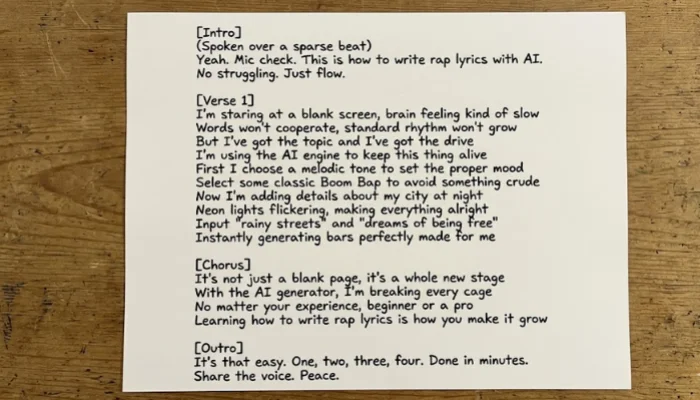 [Intro]
(Spoken over a sparse beat)
Yeah. Mic check. This is how to write rap lyrics with AI.
No struggling. Just flow.
[Verse 1]
I'm staring at a blank screen, brain feeling kind of slow
Words won't cooperate, standard rhythm won't grow
But I've got the topic and I've got the drive
I'm using the AI engine to keep this thing alive
First I choose a melodic tone to set the proper mood
Select some classic Boom Bap to avoid something crude
Now I'm adding details about my city at night
Neon lights flickering, making everything alright
Input "rainy streets" and "dreams of being free"
Instantly generating bars perfectly made for me
[Chorus]
It's not just a blank page, it's a whole new stage
With the AI generator, I'm breaking every cage
No matter your experience, beginner or a pro
Learning how to write rap lyrics is how you make it grow
[Outro]
It's that easy. One, two, three, four. Done in minutes.
Share the voice. Peace.